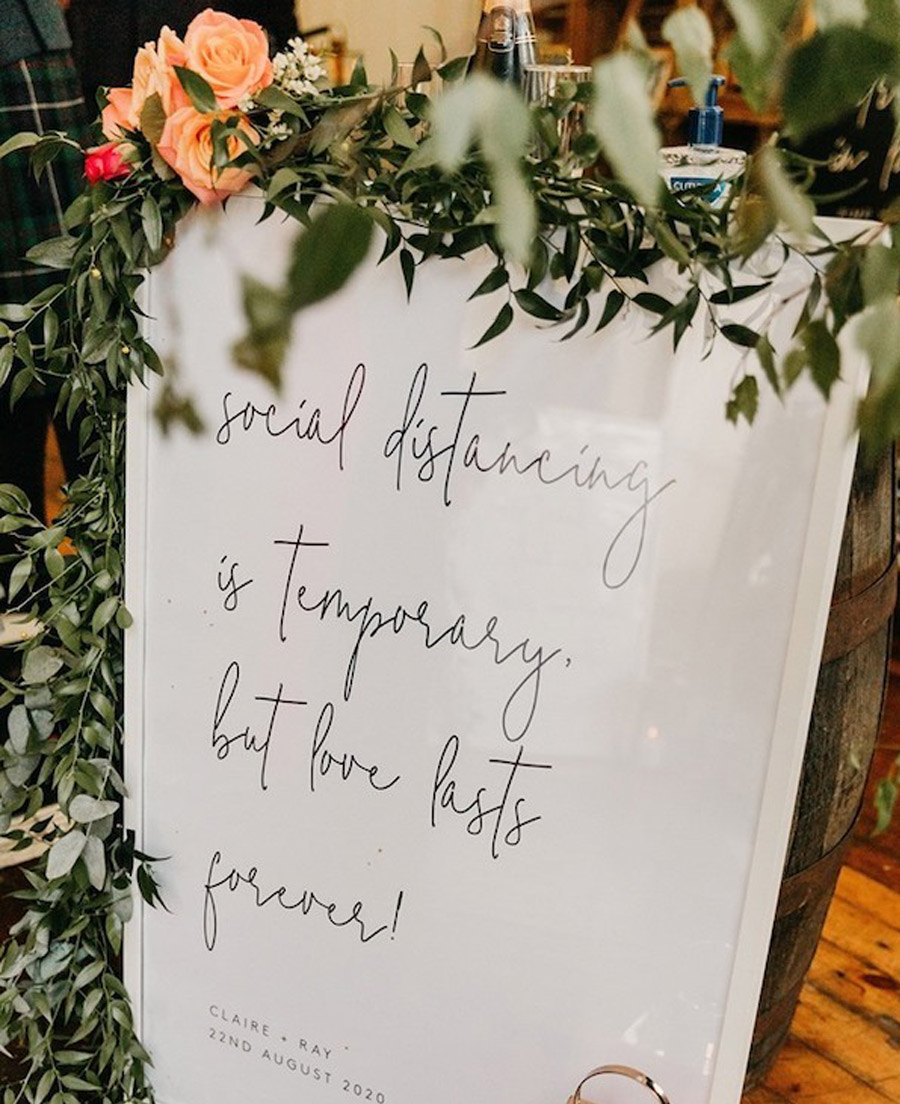 social distancing
is temporary,
but love lasts
forever!
CLAIRE + RAY
22ND AUGUST 2020